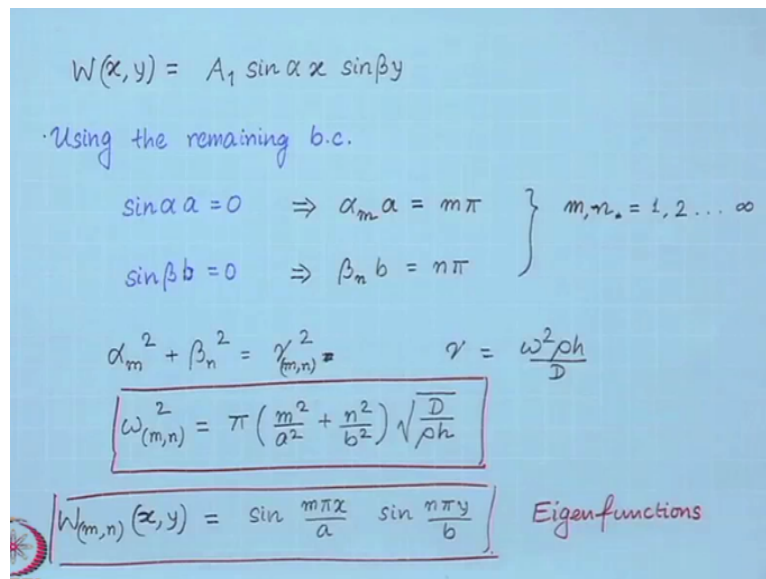 W(x,y) = A₁ sin α x sin β y
· Using the remaining b.c.
sin α a = 0 ⇒ αₘ a = mπ } m, n. = 1, 2 ... ∞
sin β b = 0 ⇒ βₙ b = nπ
αₘ² + βₙ² = γ²₍ₘ,ₙ₎ γ = ω²ρh/D
ω²₍ₘ,ₙ₎ = π (m²/a² + n²/b²) √(D/ρh)
W₍ₘ,ₙ₎ (x,y) = sin mπx/a sin nπy/b Eigenfunctions